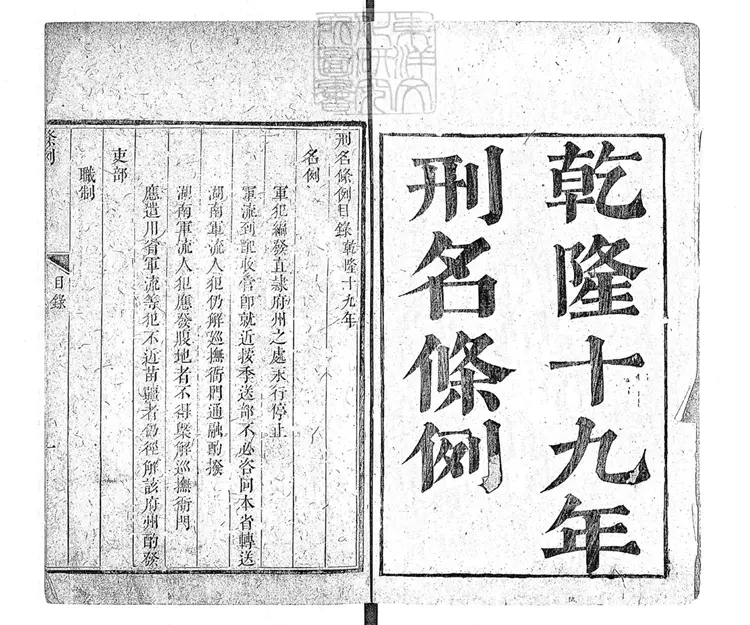 乾隆十九年
刑名條例
刑名條例目錄乾隆十九年
名例
軍犯編發直隷府州之處永行停止
軍流到配收管即就近按季送部不必咨同本省轉送
湖南軍流人犯仍解巡撫衙門通融酌撥
湖南軍流人犯應發腹地者不得槩解巡撫衙門
應遣川省軍流等犯不近苗疆者仍徑解該府州酌發
吏部
職制
條例
目錄
一